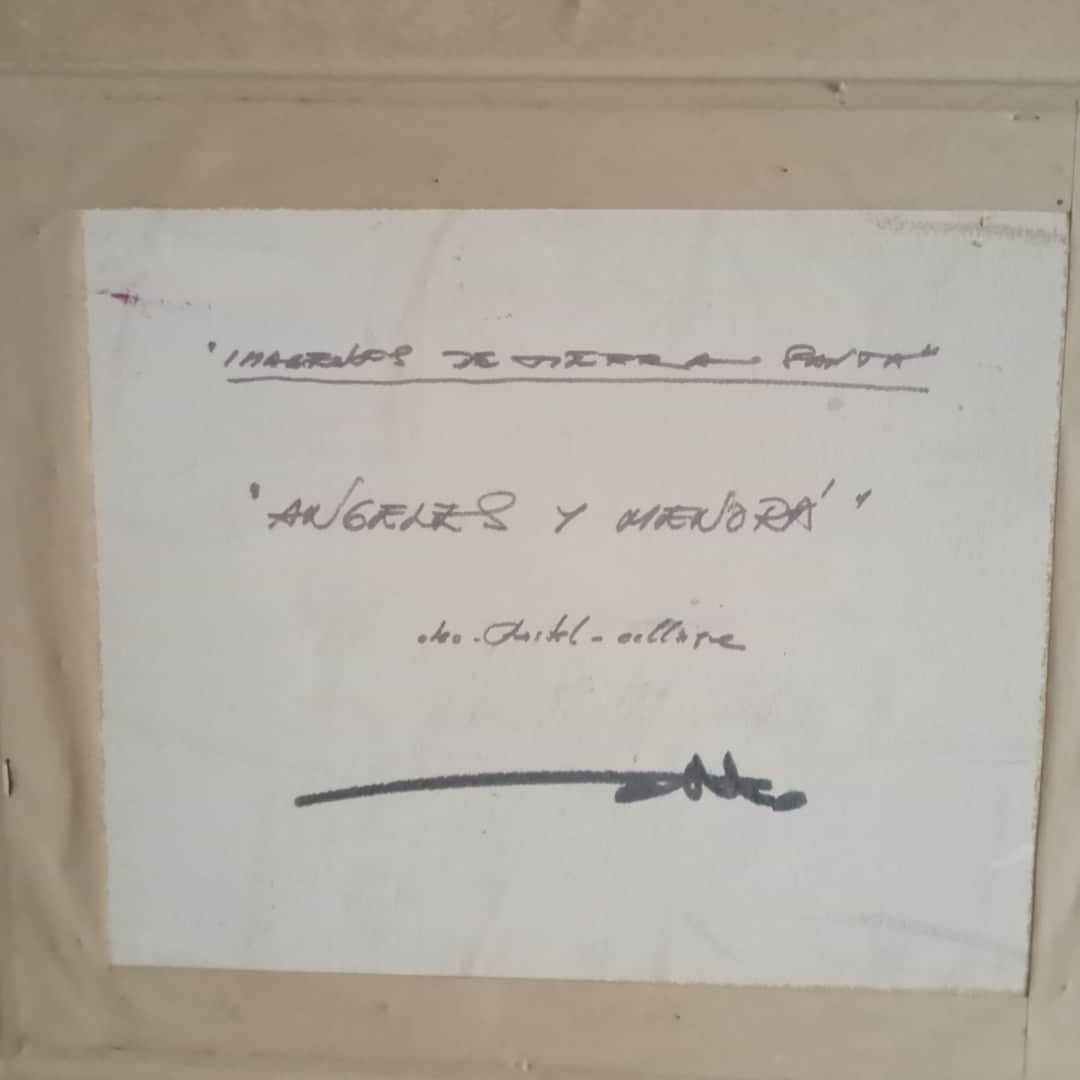 "IMAGENES DE TIERRA SANTA"
"ANGELES Y MENORÁ"
oleo - Pastel - collage